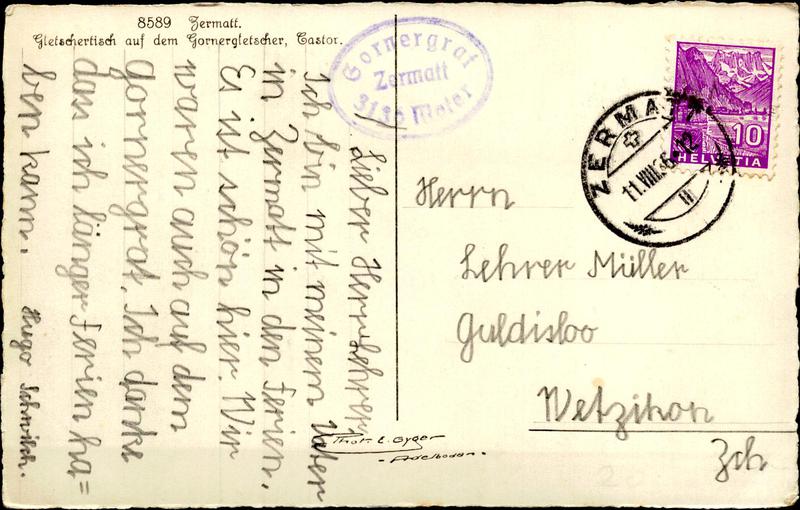 8589 Zermatt.
Gletschertisch auf dem Gornergletscher, Castor.
Gornergrat
Zermatt
3136 Meter
Lieber Herr Lehrer
Ich bin mit meinem Vater
in Zermatt in den Ferien.
Es ist schön hier. Wir
waren auch auf dem
Gornergrat. Ich danke
das ich länger Ferien ha=
ben kann.
Hugo
ZERMATT
11.VIII.36-12
10
HELVETIA
Herrn
Lehrer Müller
Guldisloo
Wetzikon
Zch
Phot. E. Gyger
- Adelboden -